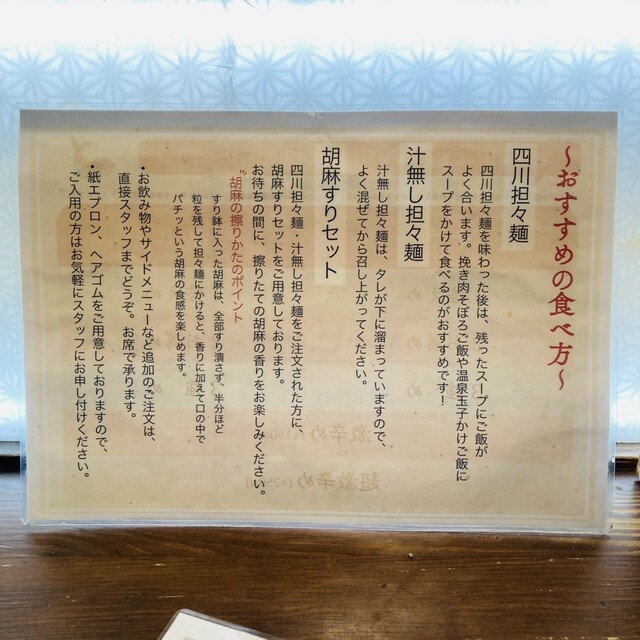 〜おすすめの食べ方〜
四川担々麺
四川担々麺を味わった後は、残ったスープにご飯が
よく合います。挽き肉そぼろご飯や温泉玉子かけご飯に
スープをかけて食べるのがおすすめです！
汁無し担々麺
汁無し担々麺は、タレが下に溜まっていますので、
よく混ぜてから召し上がってください。
胡麻すりセット
四川担々麺・汁無し担々麺をご注文された方に、
胡麻すりセットをご用意しております。
お待ちの間に、擦りたての胡麻の香りをお楽しみください。
胡麻の擦りかたのポイント
すり鉢に入った胡麻は、全部すり潰さず、半分ほど
粒を残して担々麺にかけると、香りに加えて口の中で
パチッという胡麻の食感を楽しめます。
・お飲み物やサイドメニューなど追加のご注文は、
直接スタッフまでどうぞ。お席で承ります。
・紙エプロン、ヘアゴムをご用意しておりますので、
ご入用の方はお気軽にスタッフにお申し付けください。
激辛め
超激辛め